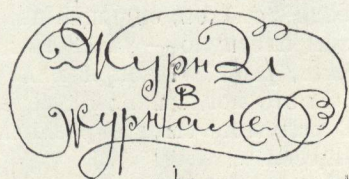 Журнал
в
журнале